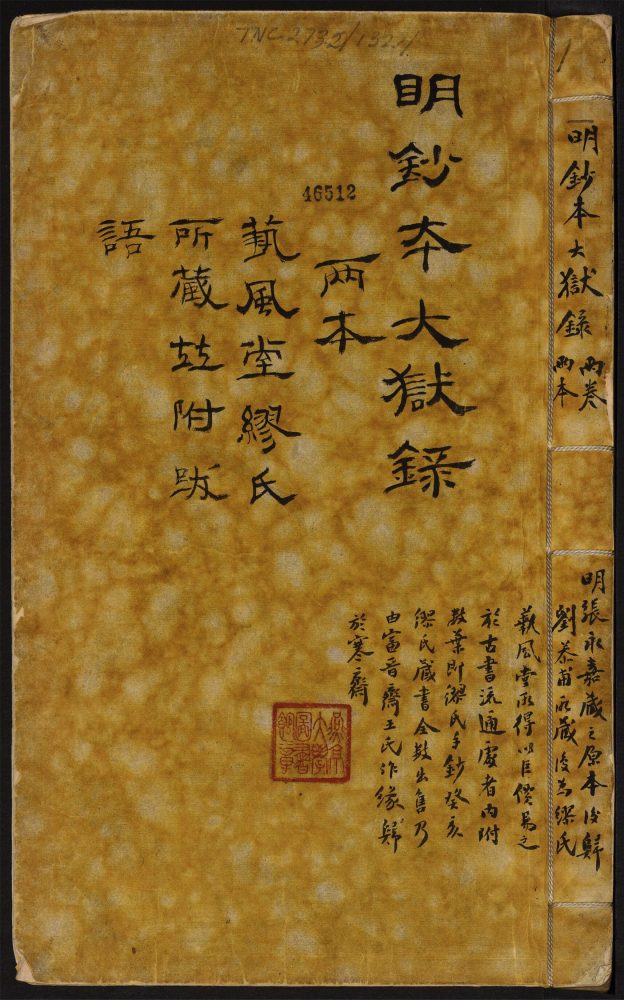 TNC 2732/1324
明鈔本大獄錄
兩本
46512
藝風堂繆氏
所藏竝附跋
語
明鈔本大獄錄
兩卷
兩本
明張永嘉藏之原本後歸
劉恭甫所藏後為繆氏
藝風堂所得以巨價易之
於古書流通處者內附
數葉即繆氏手鈔癸亥
繆氏藏書全數出售乃
由富晉齋王氏作緣歸
於寒齋